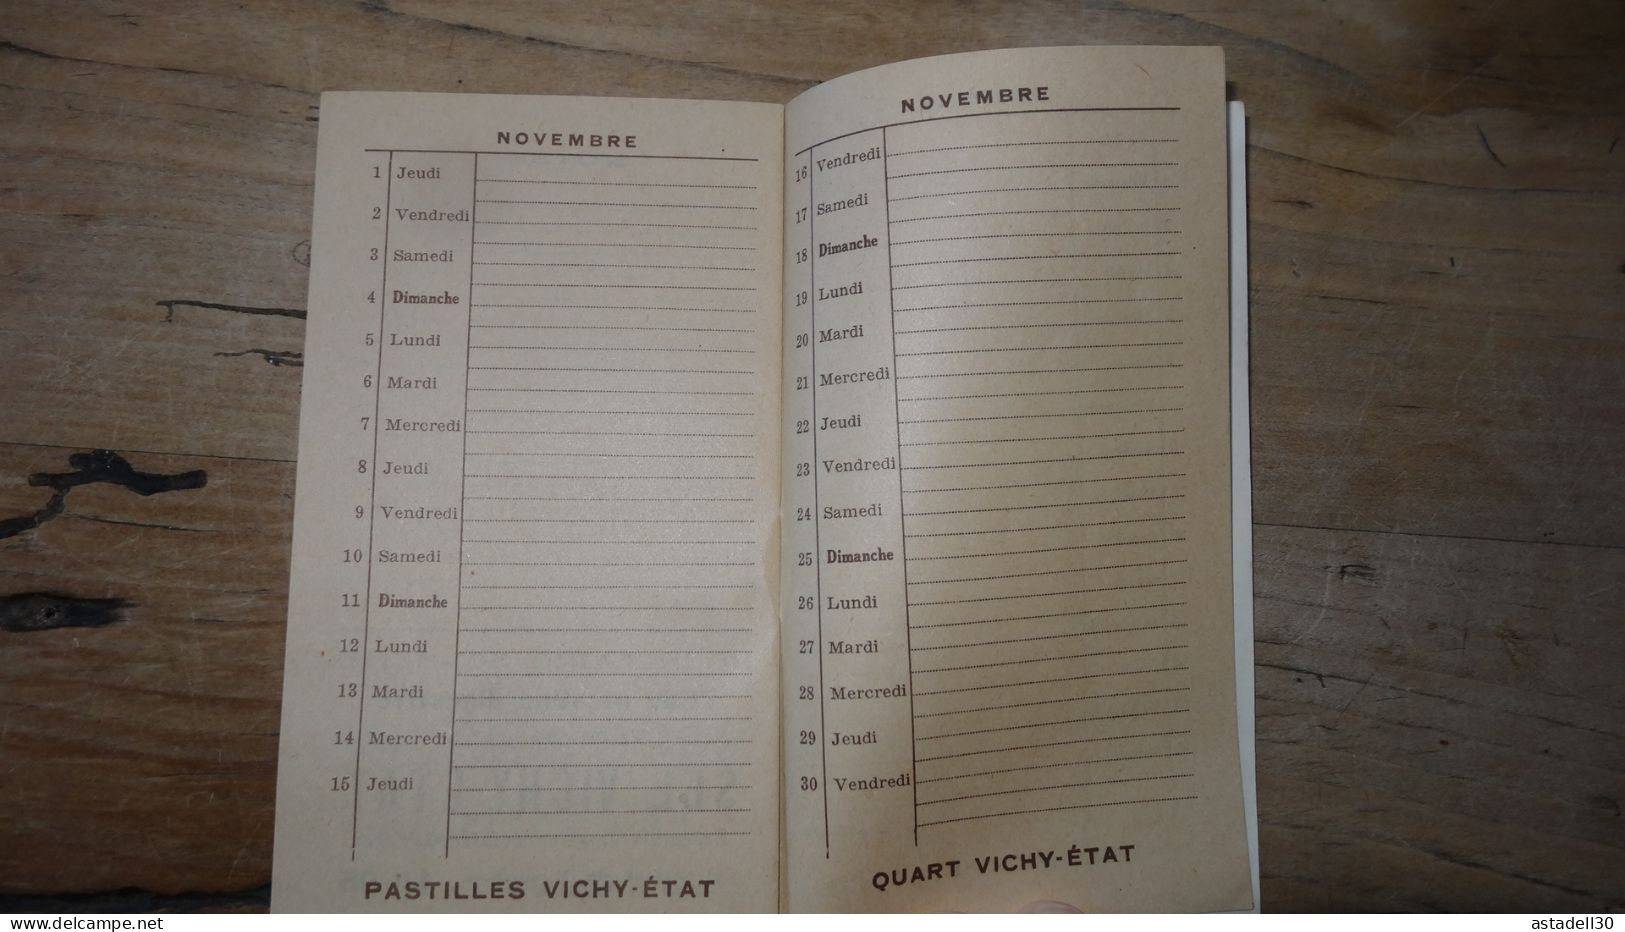 NOVEMBRE
1 Jeudi
2 Vendredi
3 Samedi
4 Dimanche
5 Lundi
6 Mardi
7 Mercredi
8 Jeudi
9 Vendredi
10 Samedi
11 Dimanche
12 Lundi
13 Mardi
14 Mercredi
15 Jeudi
PASTILLES VICHY-ÉTAT
NOVEMBRE
16 Vendredi
17 Samedi
18 Dimanche
19 Lundi
20 Mardi
21 Mercredi
22 Jeudi
23 Vendredi
24 Samedi
25 Dimanche
26 Lundi
27 Mardi
28 Mercredi
29 Jeudi
30 Vendredi
QUART VICHY-ÉTAT
www.delcampe.net
astadell30